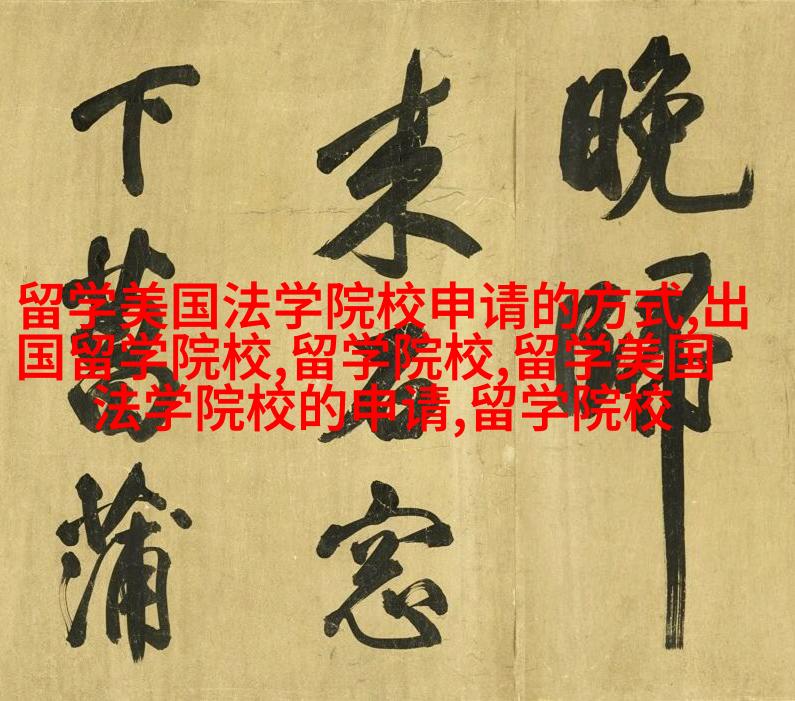 晚歸
来窓
下蒲
留学美国法学院校申请的方式,出
国留学院校,留学院校,留学美国
法学院校的申请,留学院校